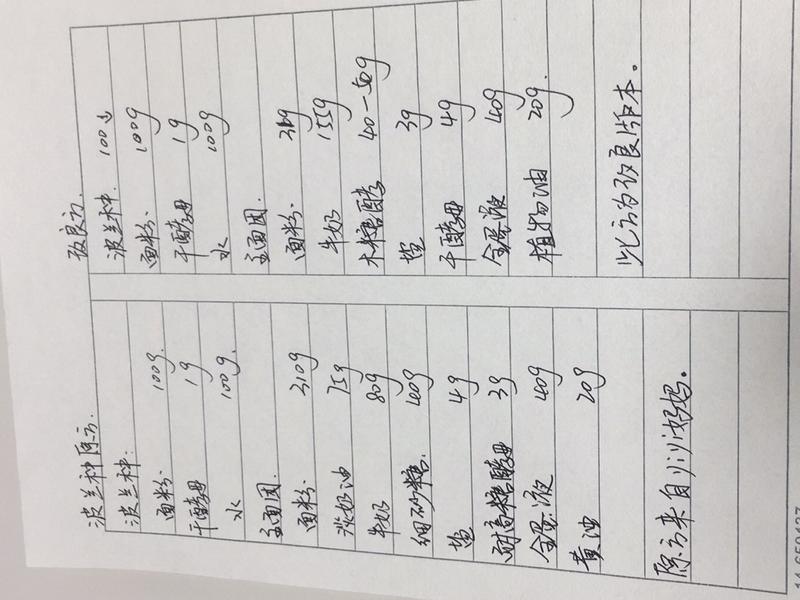 波兰种原方.
波兰种:
面粉. 100g.
干酵母 1g
水 100g.
主面团.
面粉. 310g
淡奶油 75g
牛奶 80g
细砂糖. 40g
盐 4g
耐高糖酵母 3g
全蛋液 40g
黄油 20g
原方来自小小妈妈。
改良方.
波兰种.
面粉. 100g
干酵母 1g
水 100g
主面团.
面粉. 310g
牛奶 155g
木糖醇 40-50g
盐 3g
干酵母 4g
全蛋液 40g
植物油 20g.
此方为改良版本。